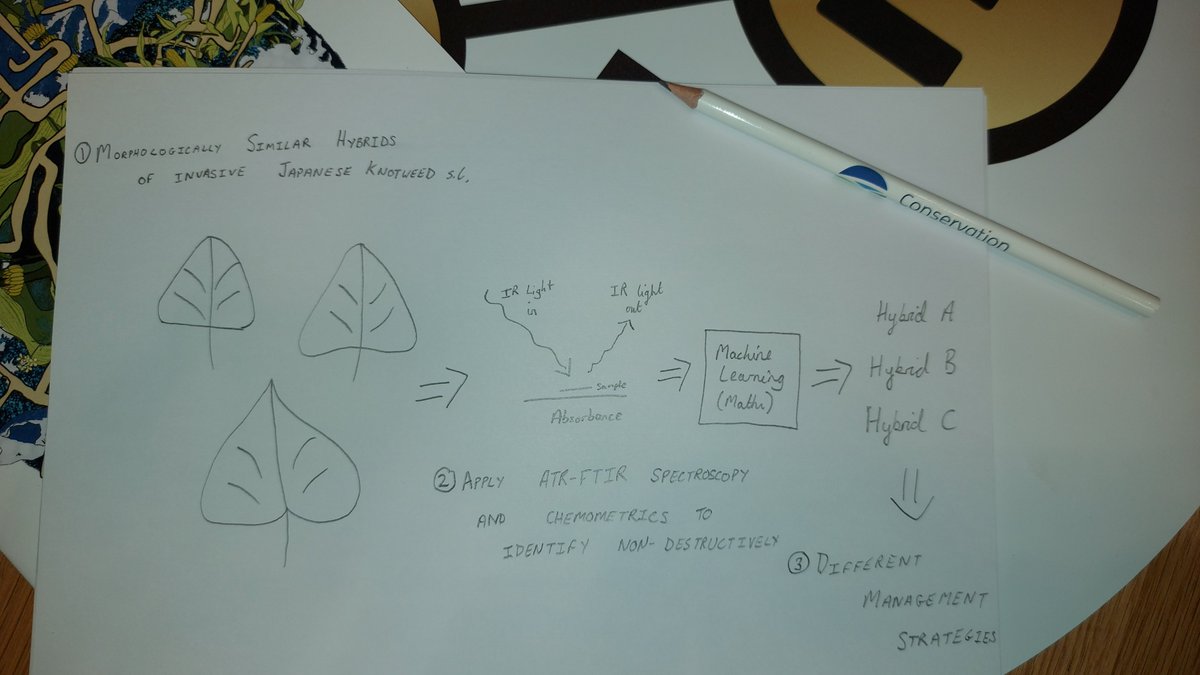 ① MORPHOLOGICALLY SIMILAR HYBRIDS
OF INVASIVE JAPANESE KNOTWEED s.l.
IR Light
in
IR light
out
sample
Absorbance
Machine
Learning
(Maths)
Hybrid A
Hybrid B
Hybrid C
② APPLY ATR-FTIR SPECTROSCOPY
AND CHEMOMETRICS TO
IDENTIFY NON-DESTRUCTIVELY
③ DIFFERENT
MANAGEMENT
STRATEGIES
Conservation